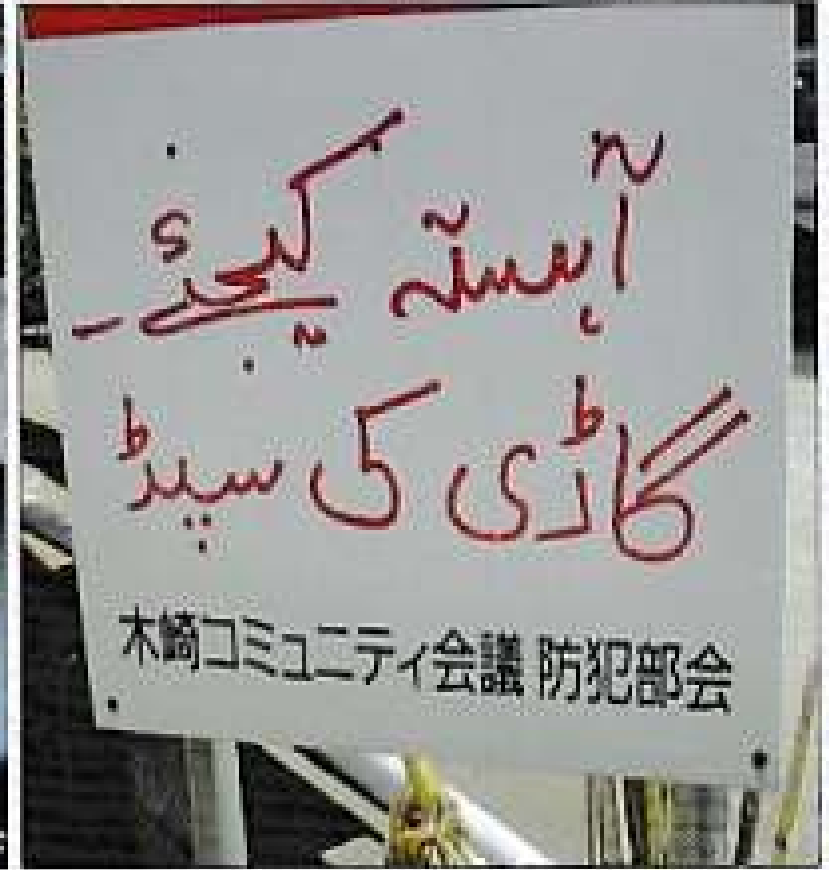 آہستہ کیجئے۔
گاڑی کی سپیڈ
木崎コミュニティ会議 防犯部会